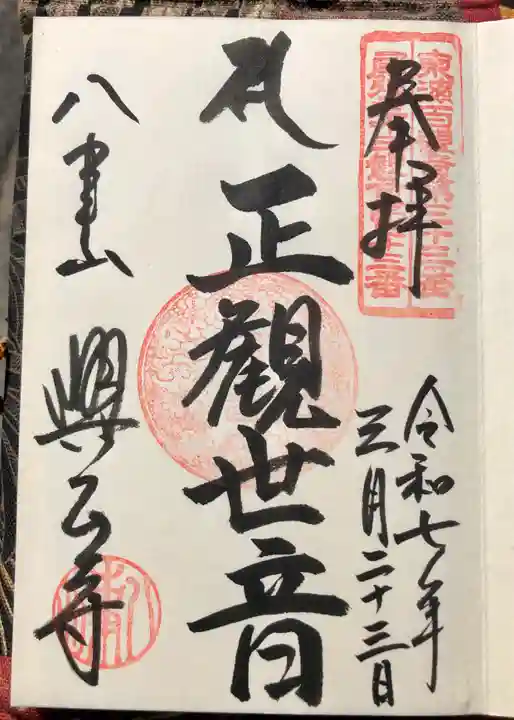 奉拝
令和七年
三月二十三日
正観世音
八事山
興正寺